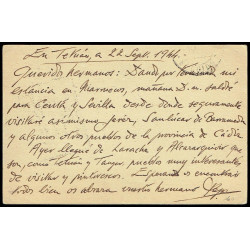 En Tetuán, a 22 Sept. 1944.
Queridos hermanos: Dando por terminada mi
estancia en Marruecos, mañana D. m. saldré
para Ceuta y Sevilla desde donde seguramente
visitaré asimismo Jerez, Sanlúcar de Barrameda
y algunos otros pueblos de la provincia de Cádiz.
Ayer llegué de Larache y Alcazarquivir que
son, como Tetuán y Tanger, pueblos muy interesantes
de visitar y pintorescos. Esperando os encontréis
todos bien os abraza vuestro hermano